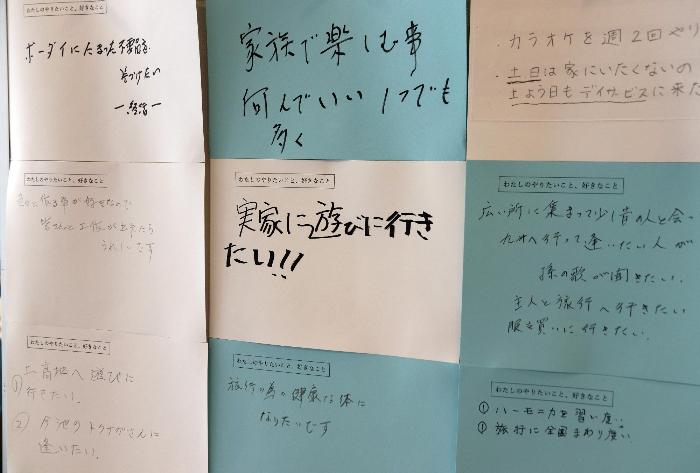 わたしのやりたいこと、好きなこと
ボーダイにたまった不用品を
片づけたい
ー終活ー
家族で楽しむ事
何んでいい いつでも
多く
・カラオケを週2回やり
・土日は家にいたくないの
土よう日もデイサービスに来た
わたしのやりたいこと、好きなこと
作る事が好きなので
皆さんと工作が出来たら
うれしいです
わたしのやりたいこと、好きなこと
実家に遊びに行き
たい!!
わたしのやりたいこと、好きなこと
広い所に集まって少し昔の人と会
九州へ行って逢いたい人が
孫の歌が聞きたい.
主人と旅行へ行きたい
服を買いに行きたい.
わたしのやりたいこと、好きなこと
① 上高地へ遊びに
行きたい.
② 今池のトクナガさんに
逢いたい.
わたしのやりたいこと、好きなこと
旅行の為の健康な体に
なりたいです
わたしのやりたいこと、好きなこと
① ハーモニカを習い度い.
② 旅行に全国まわり度い